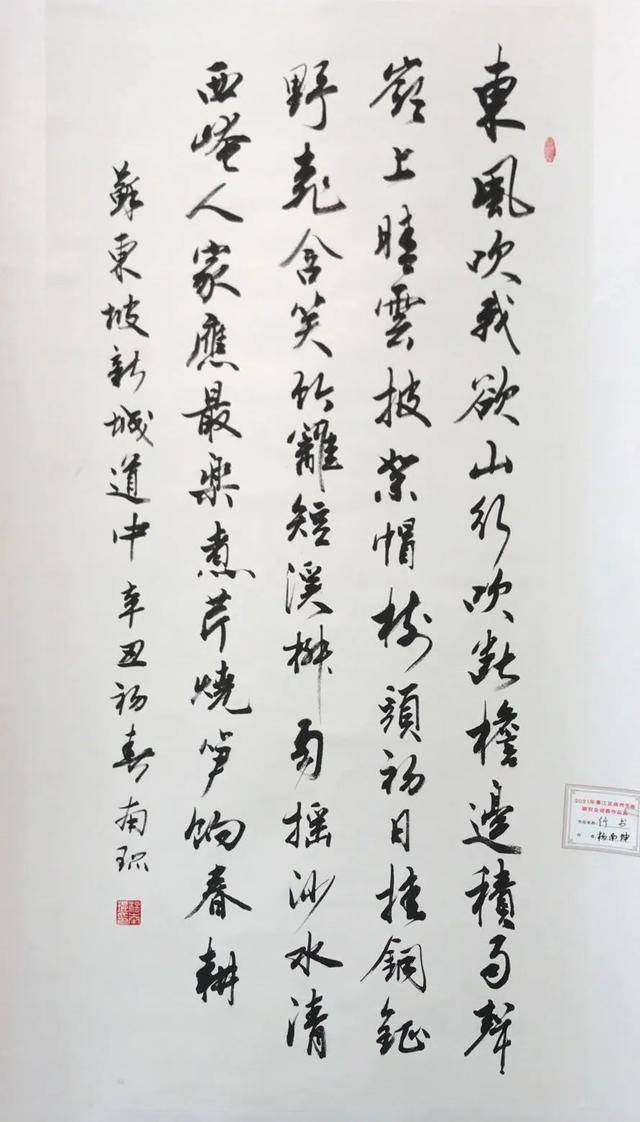 東風吹我欲山行吹斷檐邊積雨聲
嶺上晴雲披絮帽樹頭初日挂銅鉦
野桃含笑竹籬短溪柳自搖沙水清
西崦人家應最樂煮芹燒笋餉春耕
蘇東坡新城道中辛丑初春南琨
2021年
行书